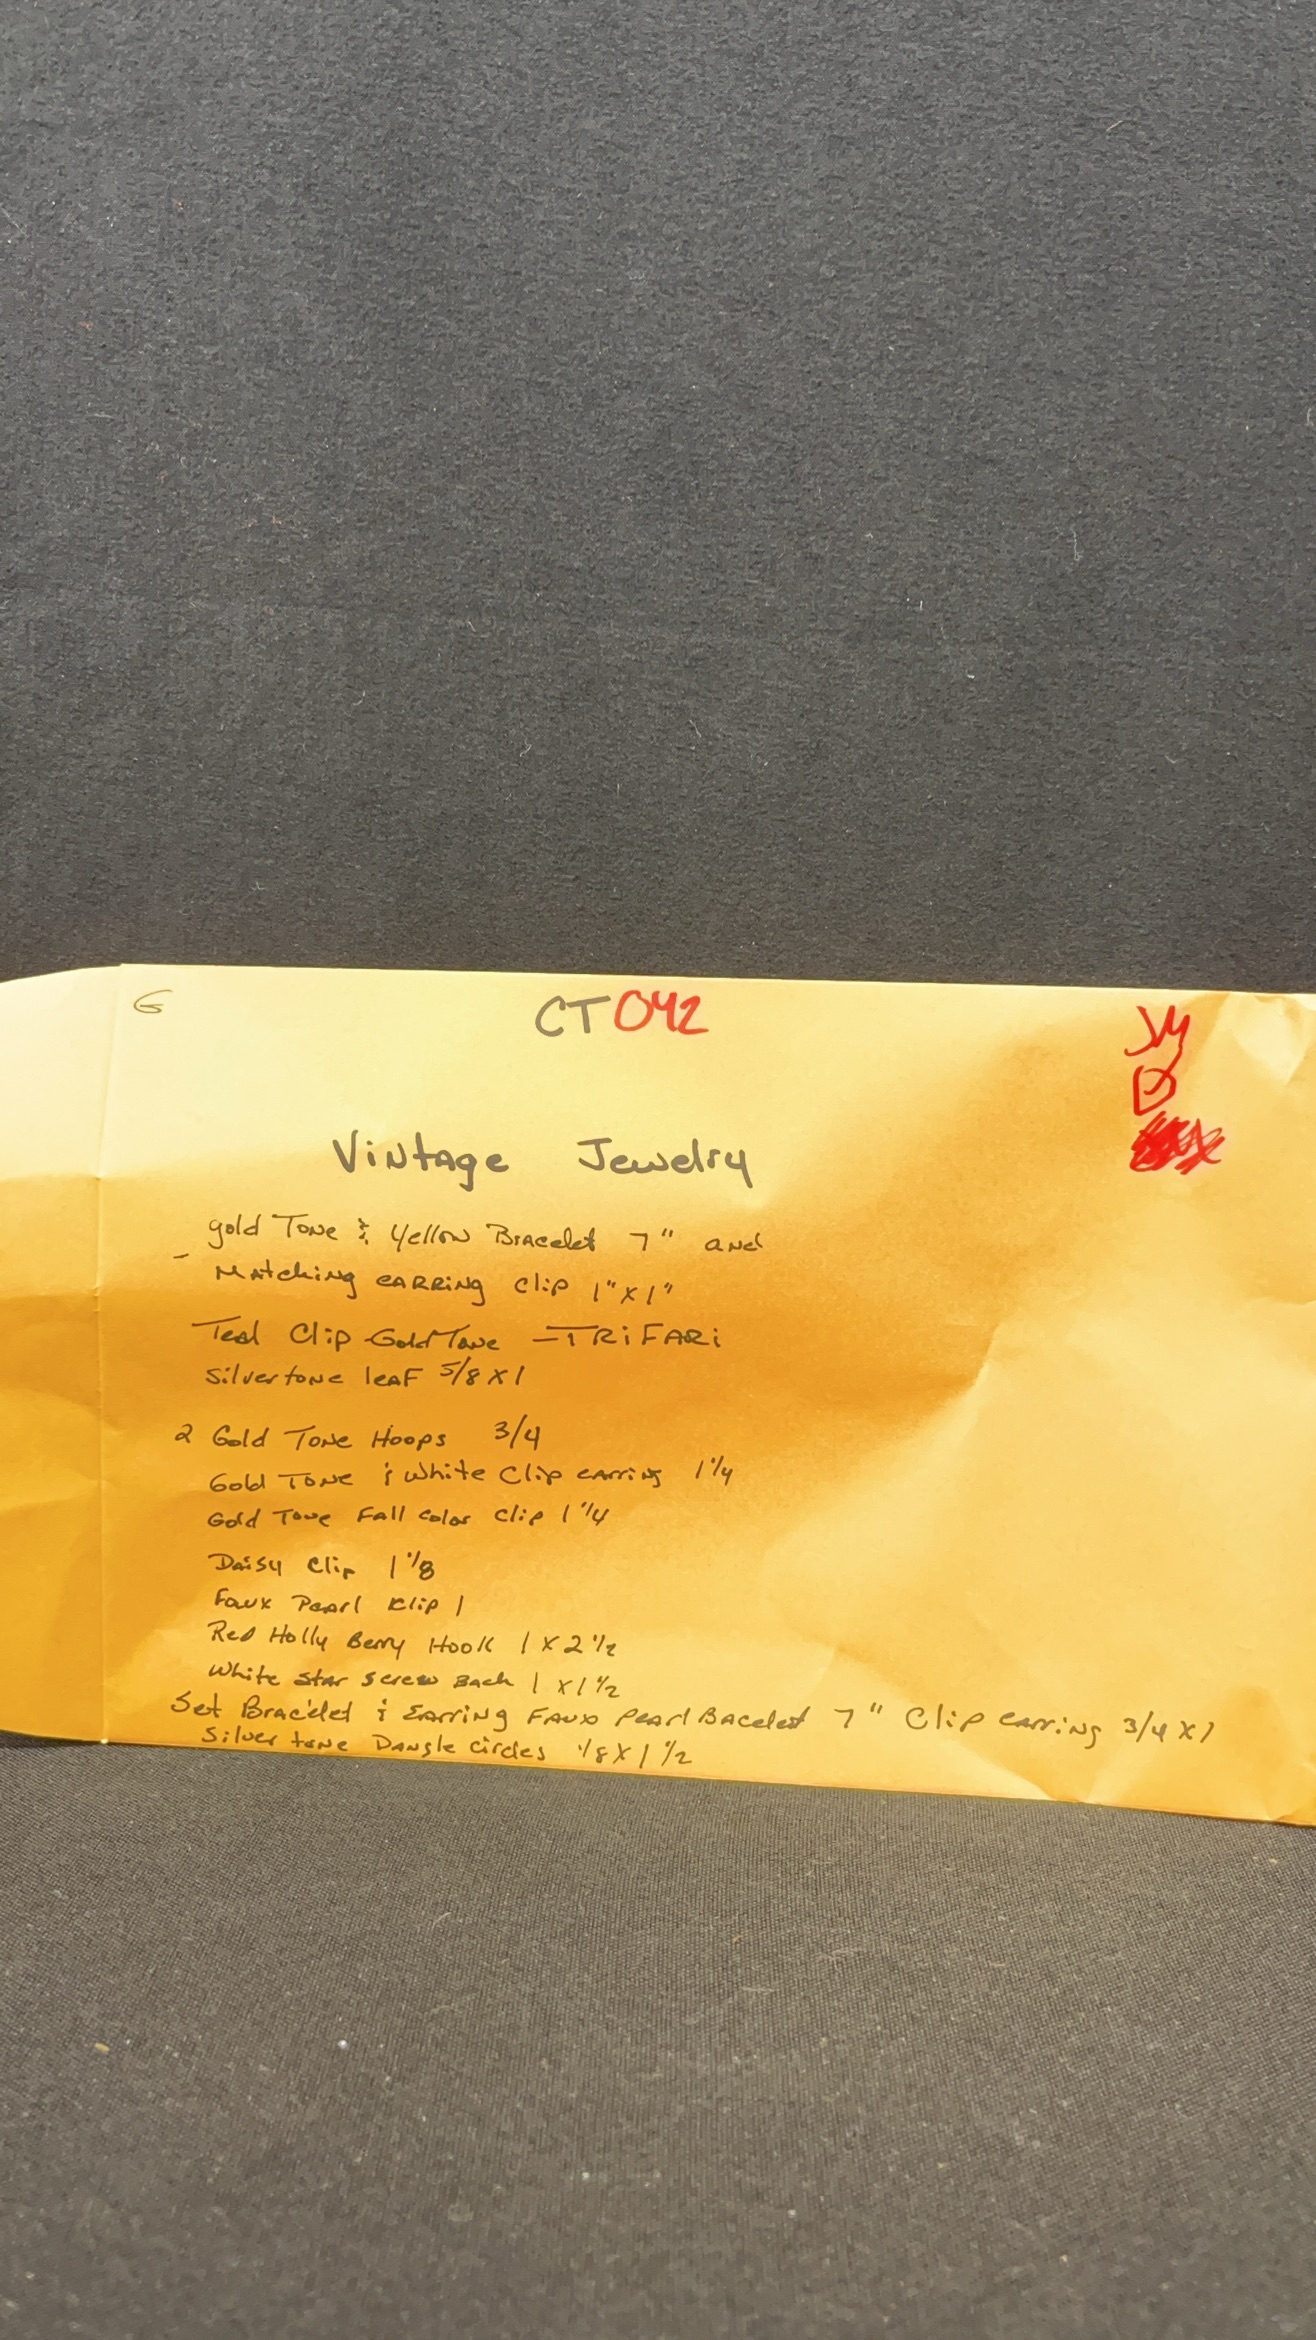 G
CT042
JM
D
Vintage Jewelry
gold Tone & Yellow Bracelet 7" and
- Matching EARRING Clip 1" X 1"
Teal Clip Gold Tone - TRiFARi
Silvertone leaf 5/8 X 1
2 Gold Tone Hoops 3/4
Gold Tone & White Clip earring 1 1/4
Gold Tone Fall color Clip 1 1/4
Daisy Clip 1 1/8
Faux Pearl Klip 1
Red Holly Berry Hook 1 X 2 1/2
White Star Screw Back 1 X 1 1/2
Set Bracelet & Earring Faux Pearl Bacelet 7" Clip earring 3/4 X 1
Silver tone Dangle circles 1/8 X 1 1/2